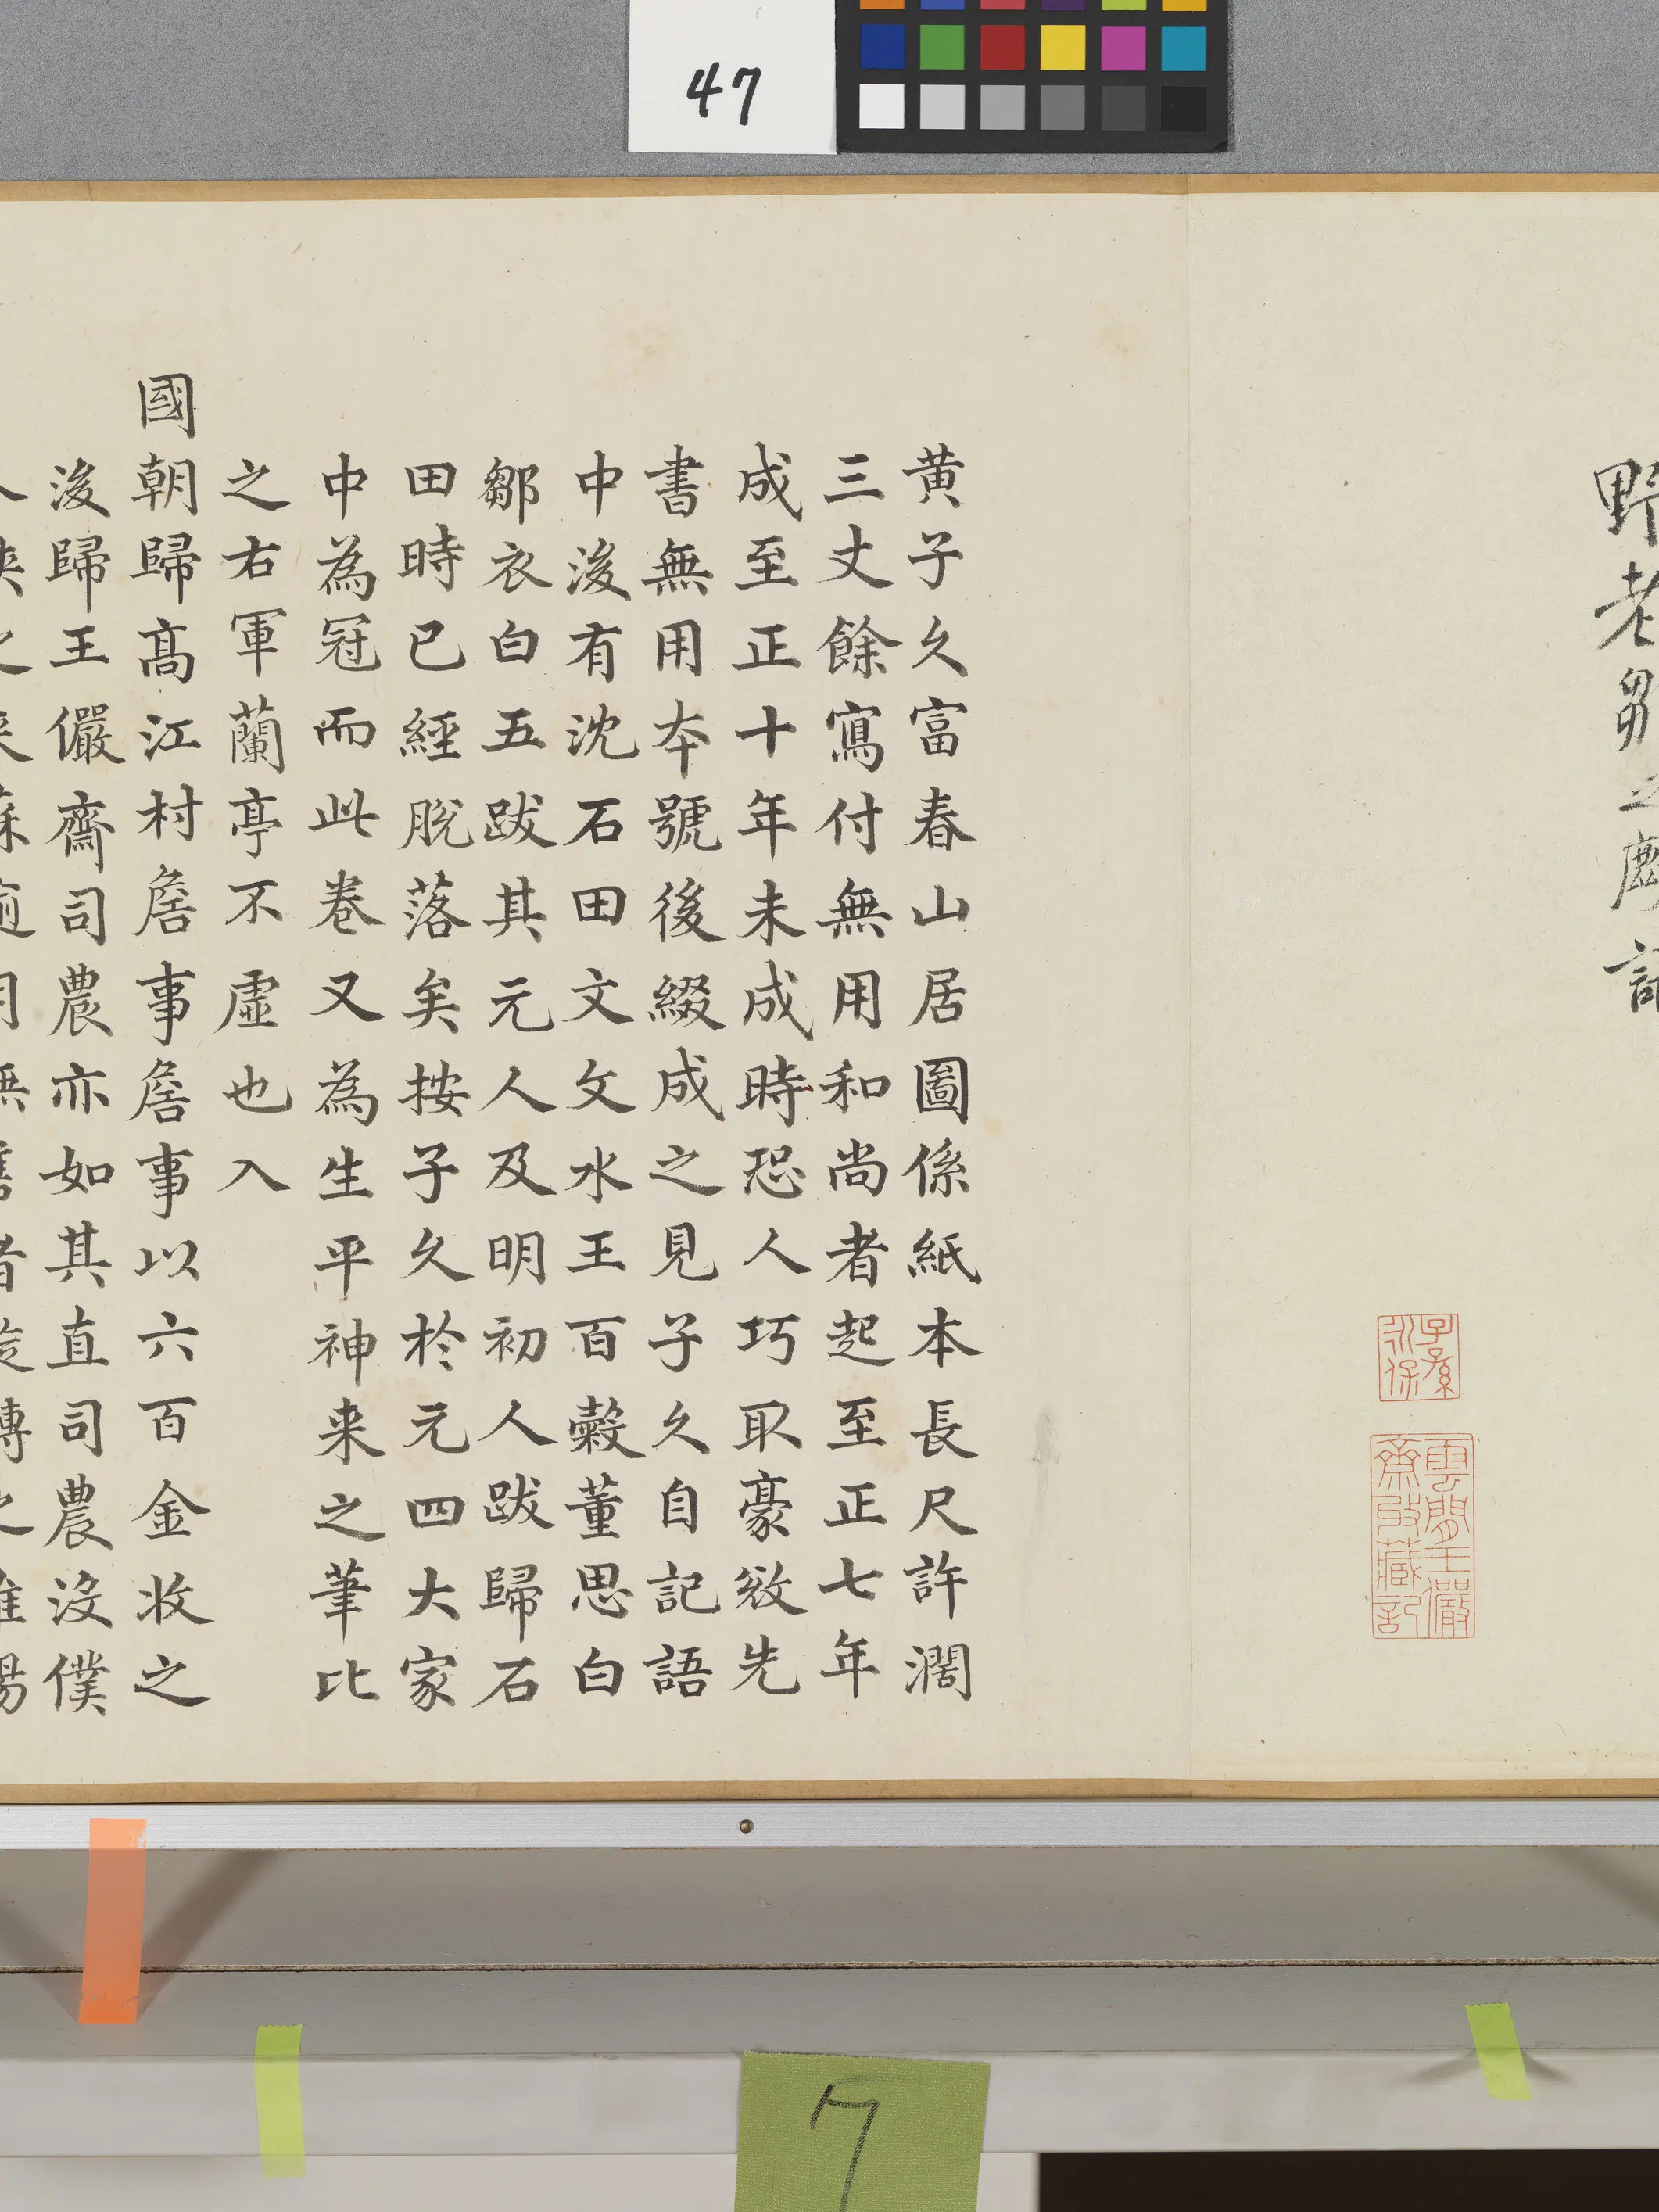 47
野老鄒之麟記
子孫
永保
雲間王儼
齋收藏記
黄子久富春山居圖係紙本長尺許濶
三丈餘寫付無用和尚者起至正七年
成至正十年未成時恐人巧取豪敚先
書無用夲號後綴成之見子久自記語
中後有沈石田文文水王百穀董思白
鄒衣白五跋其元人及明初人跋歸石
田時已經脫落矣按子久於元四大家
中為冠而此卷又為生平神来之筆比
之右軍蘭亭不虛也入
國朝歸髙江村詹事詹事以六百金收之
後歸王儼齋司農亦如其直司農沒僕
7